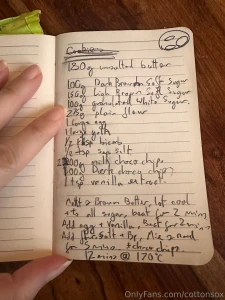 Cookies
20
180g unsalted butter
100g Dark Brown Soft Sugar
150g Light Brown Soft Sugar
100g granulated White Sugar
275g plain flour
1 large egg
1 large yolk
1/2 tsp bicarb
1/2 tsp sea salt
100g milk choc chips
Dark choc chips
1 tsp vanilla extract
Melt & Brown Butter, let cool
+ to all sugar, beat for 2 mins
Add egg + Vanilla, Beat for 2 mins
Add flour, Salt + Bp, Mix
for 5 mins, + choc chips
12 mins @ 170°C
OnlyFans.com/cottonsox